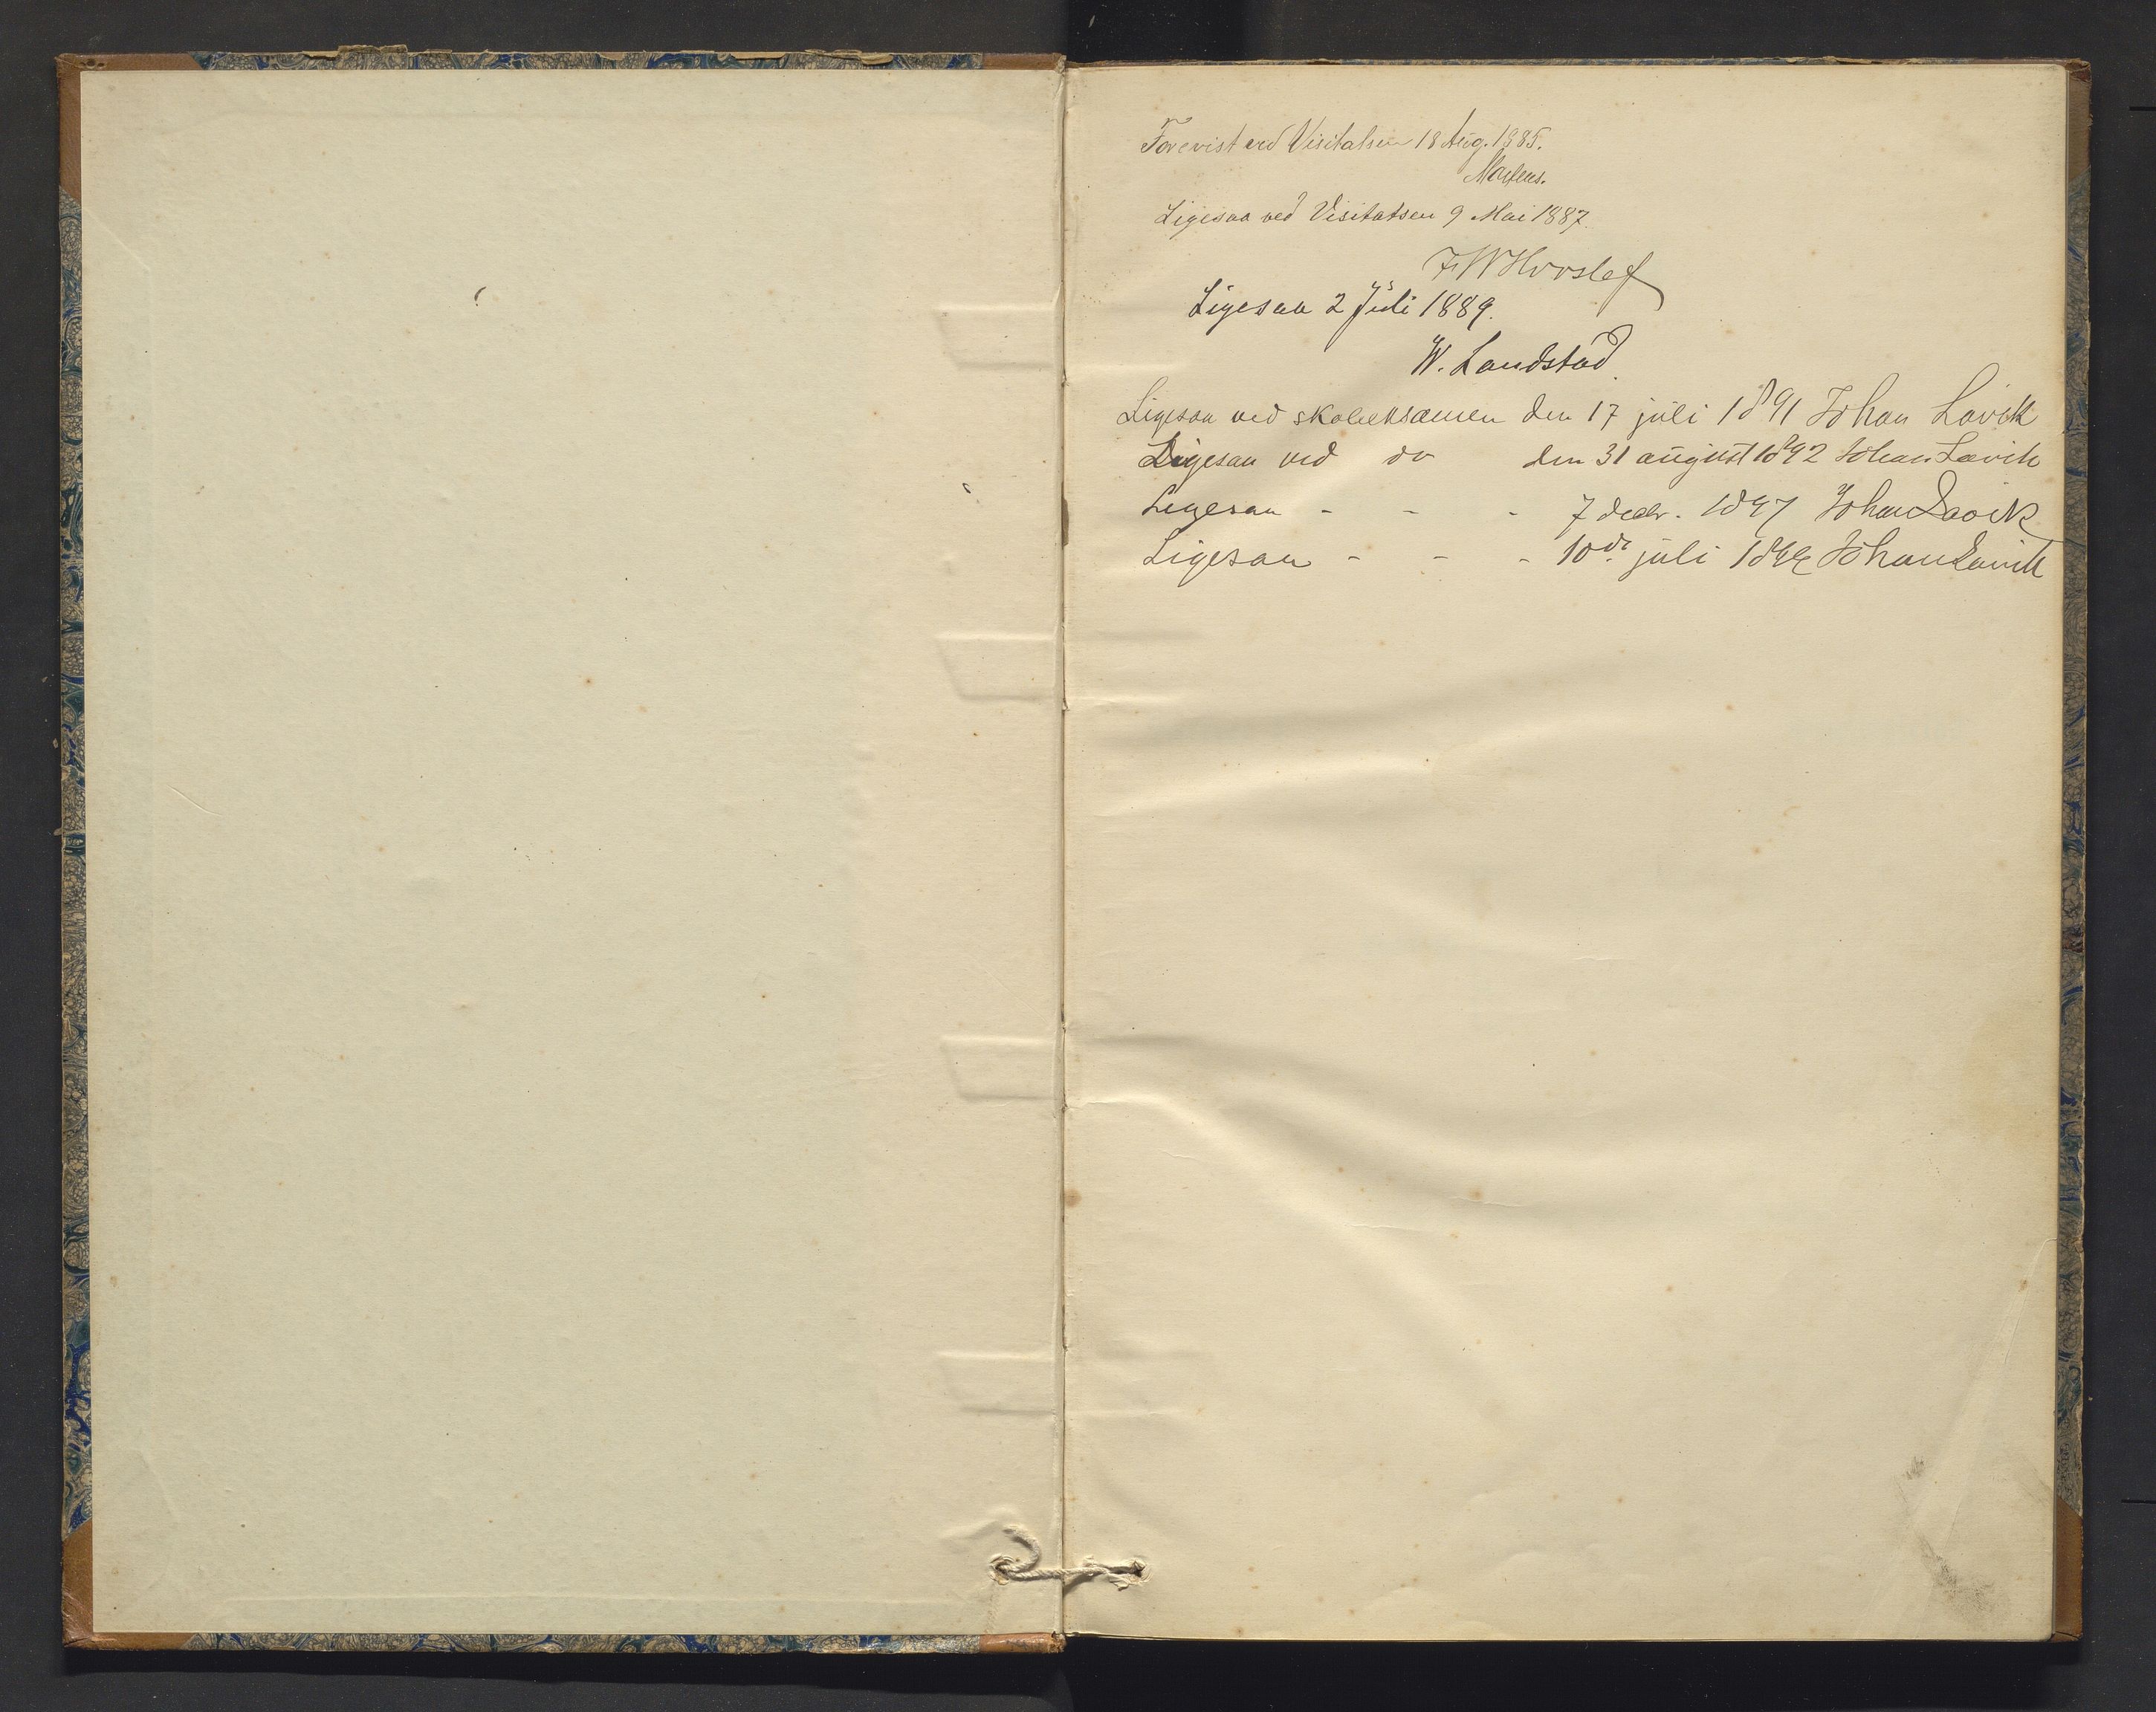 Forevist ved Visitatsen 18 Aug. 1885.
Ligesaa ved Visitatsen 9 Mai 1887.
Ligesaa 2 Juli 1889.
W. Landstad.
Ligesaa ved skoleeksamen den 17 juli 1891 Johan Lavik
Ligesaa ved do den 31 august 1892 Johan Lavik
Ligesaa - - - 7 decbr. 1897 Johan Lavik
Ligesaa - - - 10de juli 1899 Johan Lavik